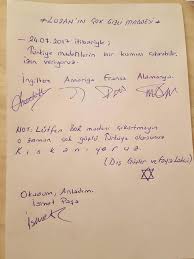 * LOZAN'IN ÇOK GİZLİ MADDESİ *
- 24.07.2017 itibariyle;
Türkiye madenlerinin bir kısmını çıkarabilir
izin veriyoruz.
İngiltere Amerika Fransa Almanya
NOT: Lütfen bak madeni çıkartmayın
o zaman çok güçlü Türkiye oluyorsunuz
Kıskanıyoruz.
(Dış Güçler ve Faiz Lobisi)
Okudum, Anladım.
İsmet Paşa
İsmet